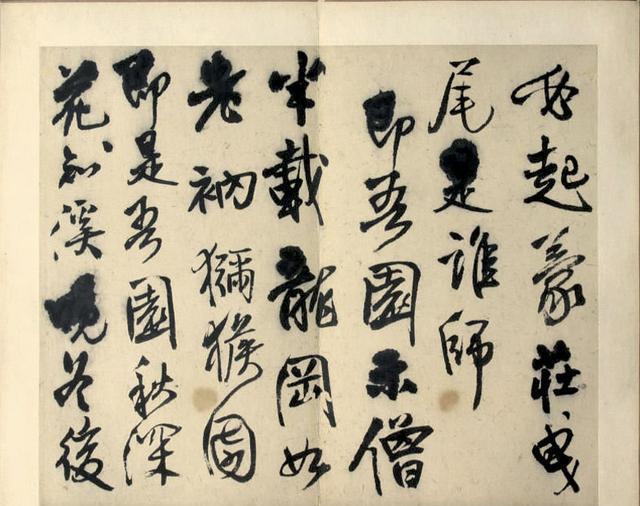 我起蒙莊曳
尾是誰師
即吾園示僧
半載龍岡如
老衲獼猴園
即是吾園秋深
花知溪晚冬後